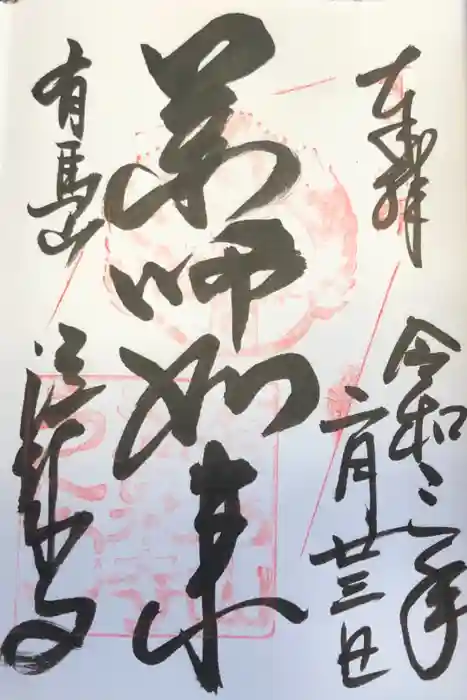 奉拝
令和二年
二月廿三日
薬師如来
有馬山
温泉寺